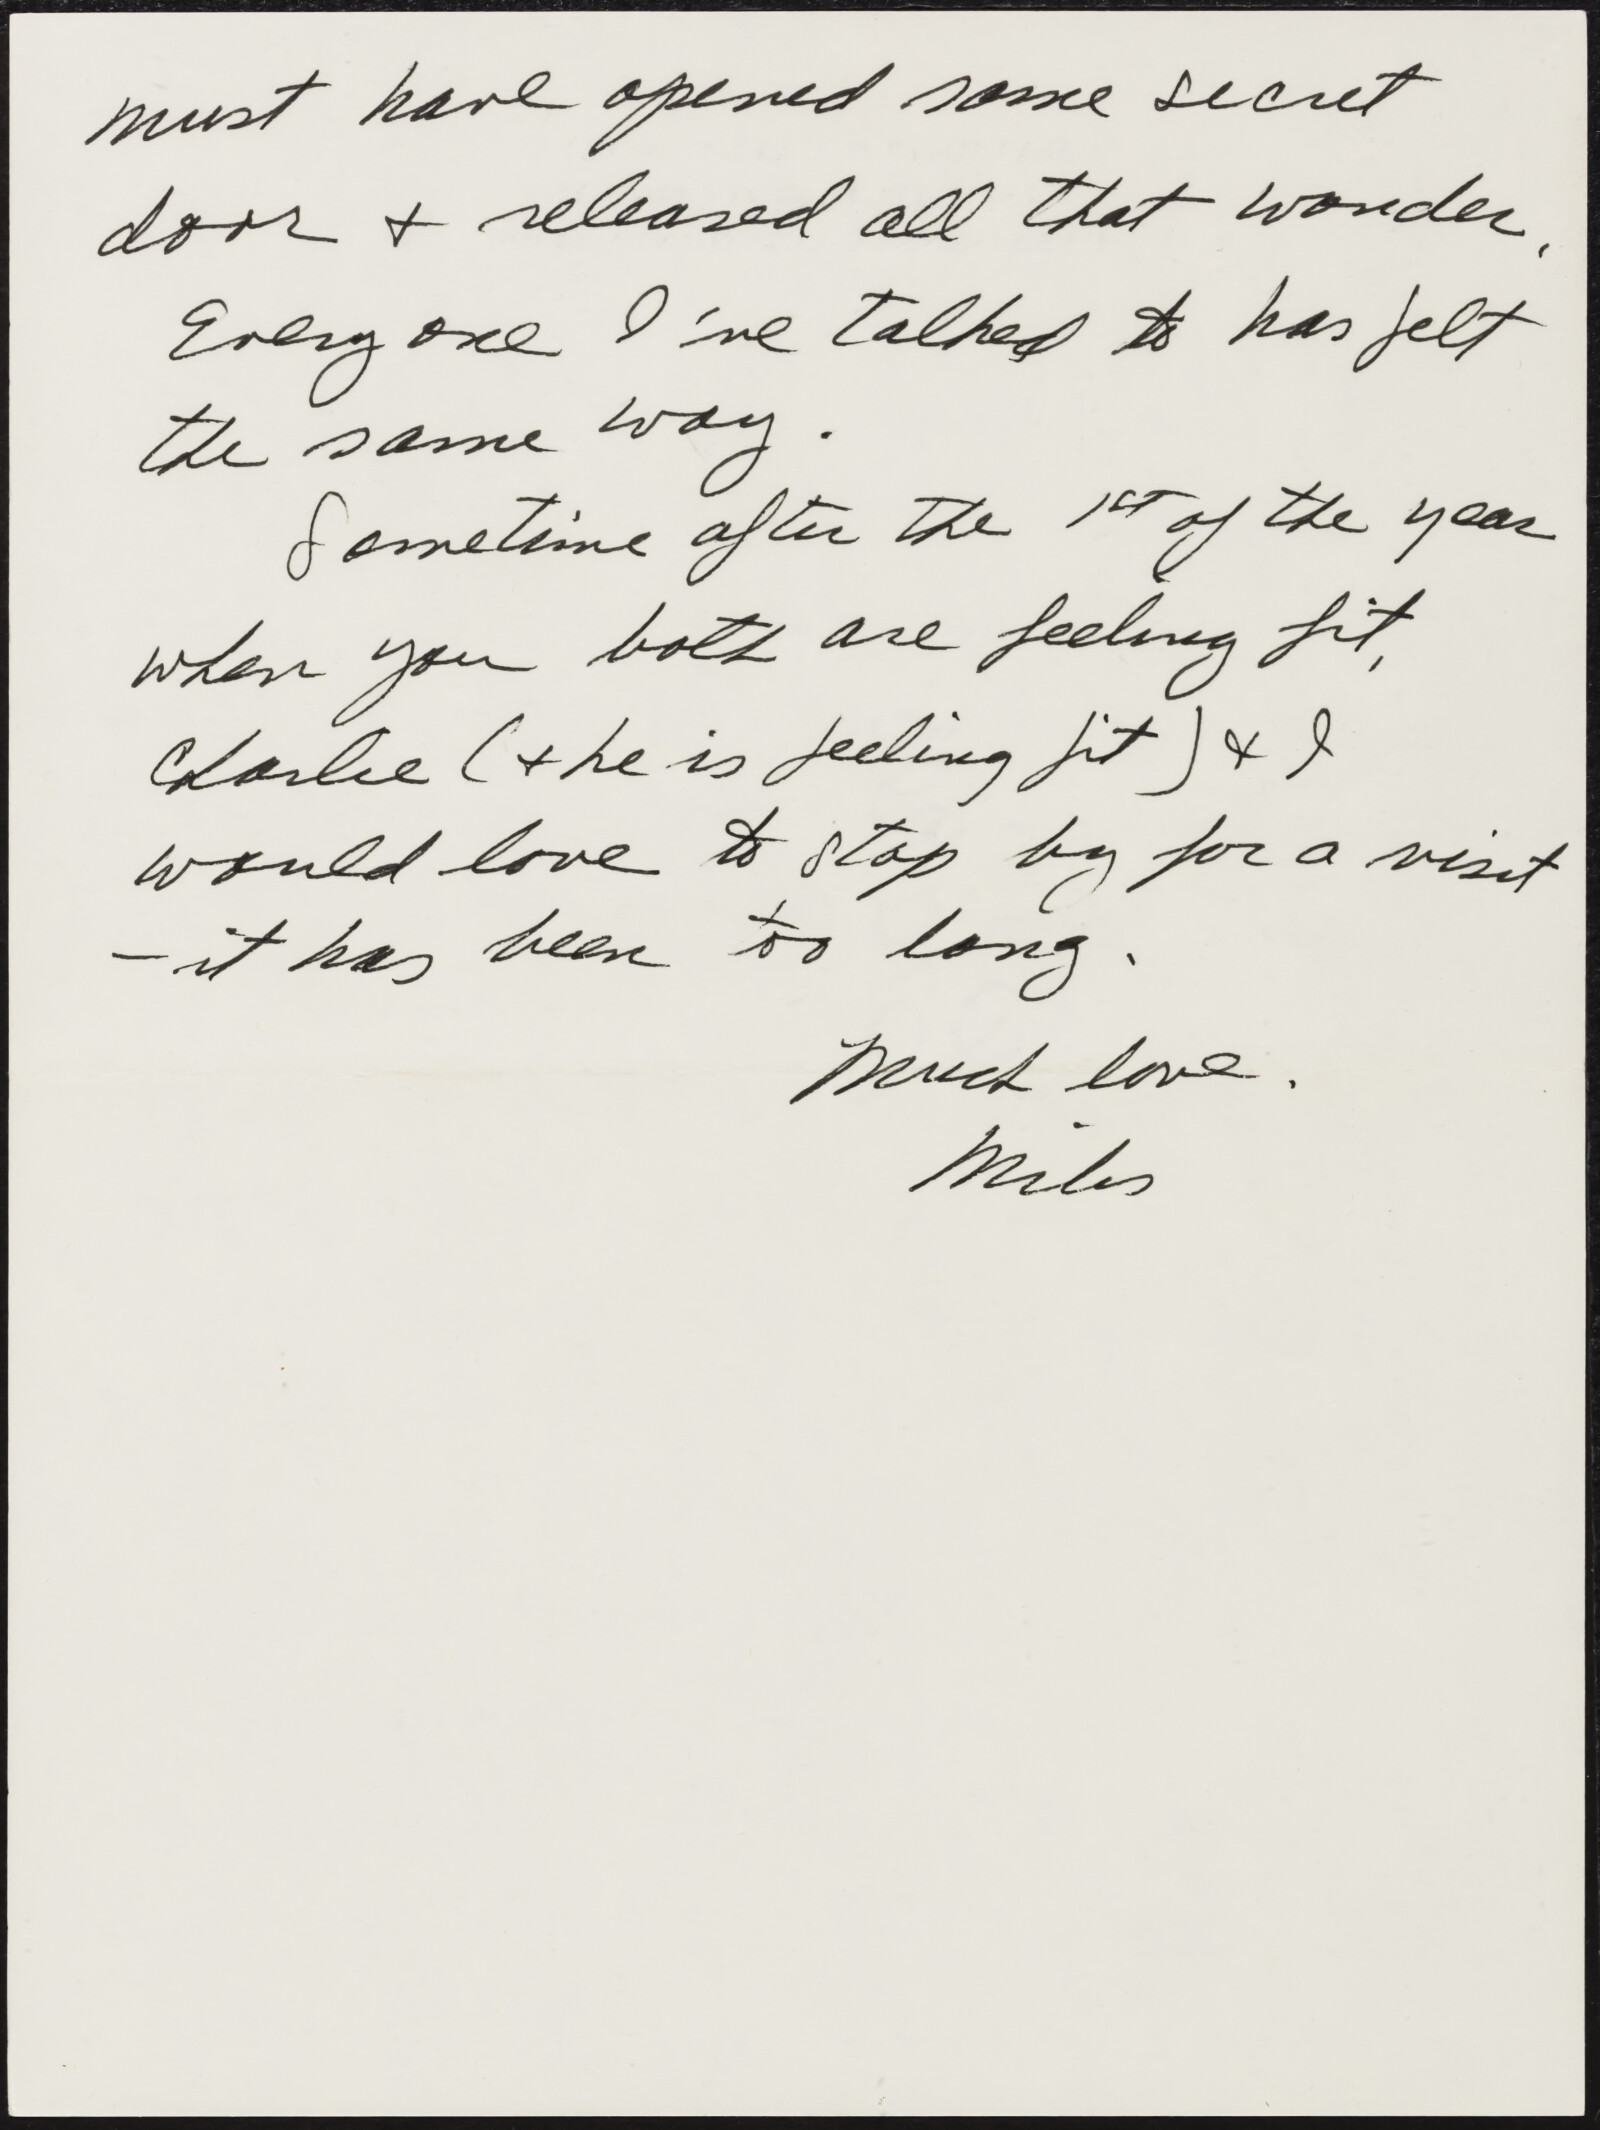 must have opened some secret
door & released all that wonder.
Everyone I've talked to has felt
the same way.
Sometime after the 1st of the year
when you both are feeling fit,
Charlie (& he is feeling fit) & I
would love to stop by for a visit
– it has been too long.
Much love.
Miles